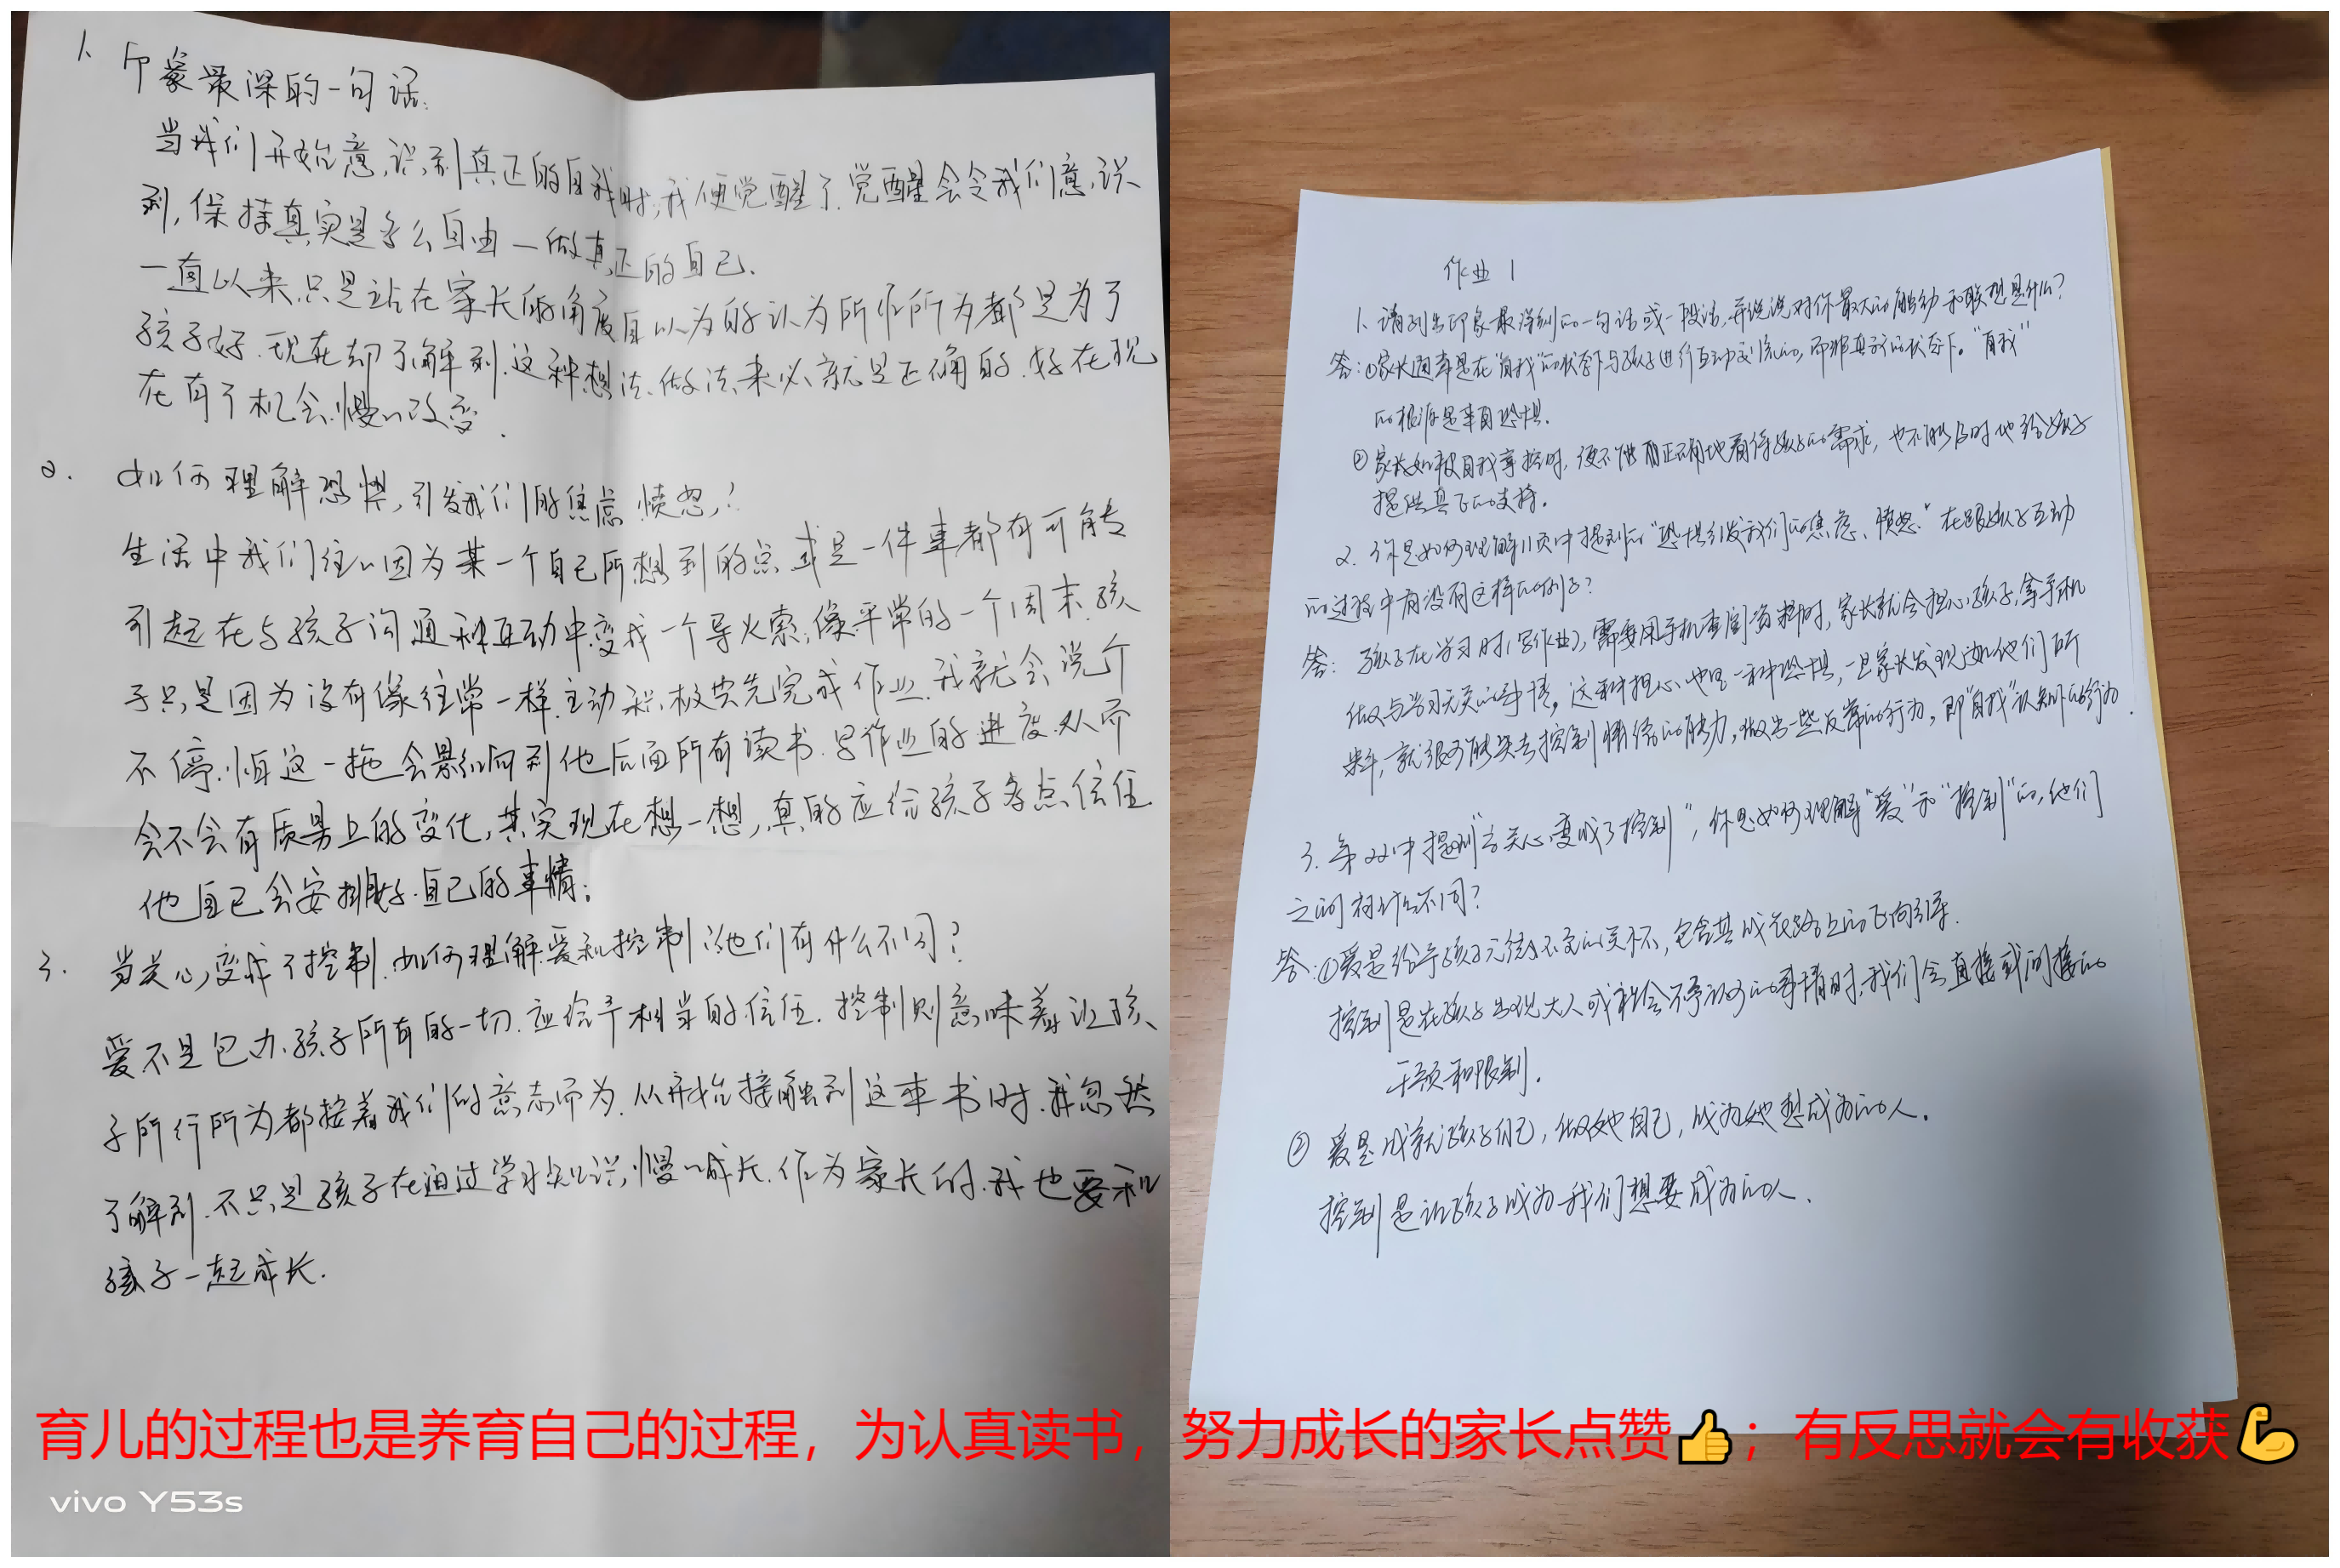 1. 印象最深的一句话:
当我们开始意识到真正的自我时,我便觉醒了.觉醒会令我们意识
到,保持真实是多么自由—做真正的自己.
一直以来,只是站在家长的角度自以为的认为所作所为都是为了
孩子好.现在却了解到.这种想法.做法.未必就是正确的.好在现
在有了机会.慢慢改变.
2. 如何理解恐惧,引发我们的焦虑 愤怒,?
生活中我们往往因为某一个自己所想到的点或是一件事都有可能
引起在与孩子沟通和互动中变成一个导火索,像平常的一个周末.孩
子只是因为没有像往常一样.主动积极 先完成作业.我就会说个
不停.怕这一拖会影响到他后面所有读书.写作业的进度.从而
会不会有质量上的变化,其实现在想一想,真的应给孩子多点信任
他自己会安排好.自己的事情;
3. 当关心变成了控制.如何理解爱和控制?他们有什么不同?
爱不是包办.孩子所有的一切.应给予相当的信任.控制则意味着让孩
子所行所为都按着我们的意志而为.从开始接触到这本书时.我忽然
了解到.不只是孩子在通过学习知识,慢慢成长.作为家长的.我也要和
孩子一起成长.
作业 1
1. 请列出印象最深刻的一句话或一段话,并说说对你最大的触动和联想是什么?
答:①家长通常是在"自我"的状态下与孩子进行互动交流的,而非真我的状态下。"自我"
的根源是来自恐惧.
②家长如被自我掌控时,便不能 正确地看待孩子的需求,也不能及时地给孩子
提供真正的支持。
2. 你是如何理解11页中提到的"恐惧引发我们的焦虑、愤怒."在跟孩子互动
的过程中有没有这样的例子?
答: 孩子在学习时(写作业),需要用手机查阅资料时,家长就会担心孩子,拿手机
做与学习无关的事情。这种担心也是一种恐惧,一旦家长发现如他们所
料,就很可能失去控制情绪的能力,做出一些反常的行为,即"自我"认知的行为.
3. 第22中提到"当关心变成了控制",你是如何理解"爱"和"控制"的,他们
之间有什么不同?
答:①爱是给予孩子无微不至的关怀,包含其成长路上的正向引导.
控制是在孩子出现大人或社会不予认可的事情时,我们会直接或间接的
干预和限制.
② 爱是成就孩子自己,做她自己,成为她想成为的人。
控制是让孩子成为我们想要成为的人.
育儿的过程也是养育自己的过程，为认真读书，努力成长的家长点赞👍；有反思就会有收获💪
vivo Y53s